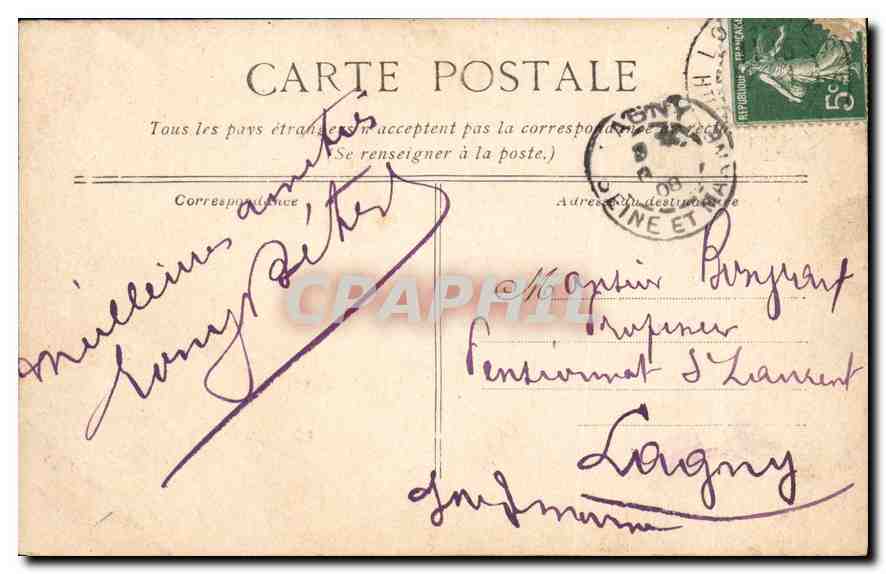 CARTE POSTALE
Tous les pays étrangers n'acceptent pas la correspondance au recto
(Se renseigner à la poste.)
Correspondance
Adresse du destinataire
meilleures amitiés
LAGNY
08
SEINE ET MARNE
RÉPUBLIQUE FRANÇAISE
5c
Professeur
Pensionnat St Laurent
Lagny
CPAPHIL